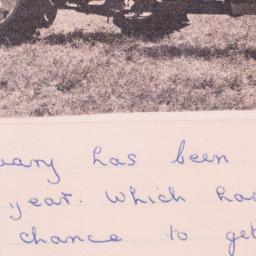 uary has been
year. Which has
chance to get